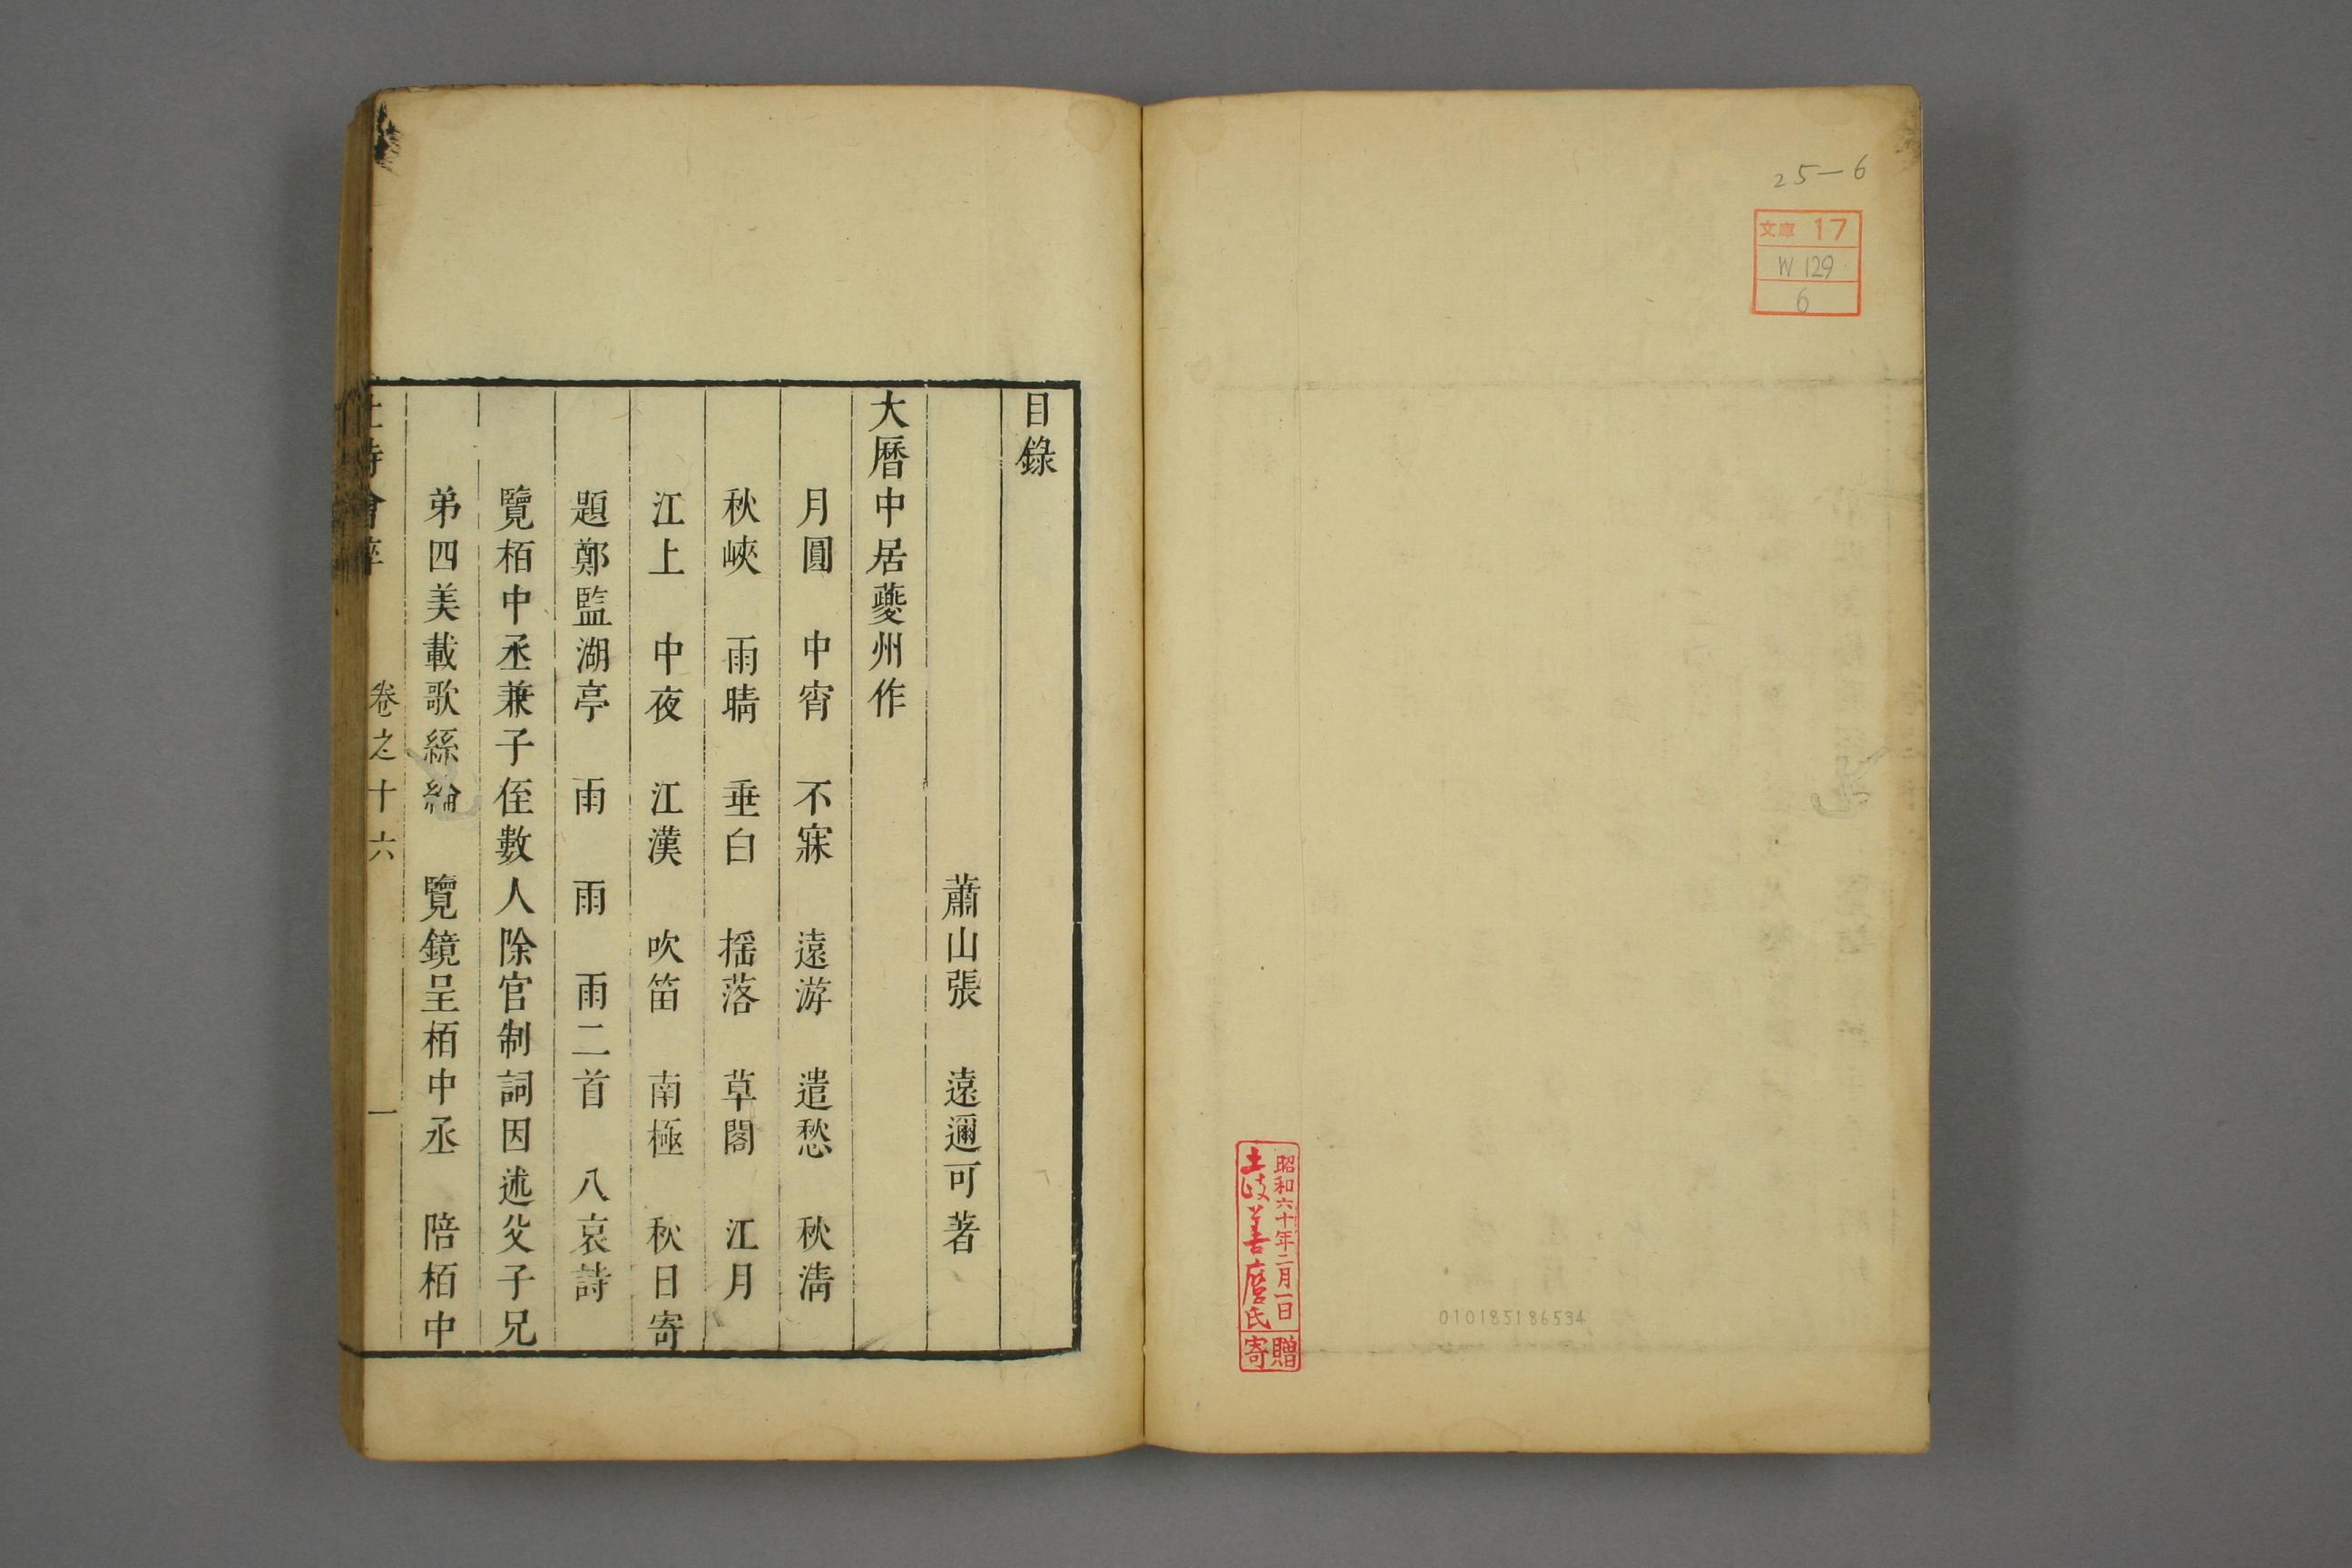 25—6
文庫 17
W 129
6
昭和六十年二月一日
土岐善麿氏
寄贈
010185186534
目錄
蕭山張　遠邇可著
大曆中居夔州作
月圓　中宵　不寐　遠游　遣愁　秋清
秋峽　雨晴　垂白　搖落　草閣　江月
江上　中夜　江漢　吹笛　南極　秋日寄
題鄭監湖亭　雨　雨　雨二首　八哀詩
覽栢中丞兼子侄數人除官制詞因述父子兄
弟四美載歌絲綸　覽鏡呈栢中丞　陪栢中
詩會稡　卷之十六　一